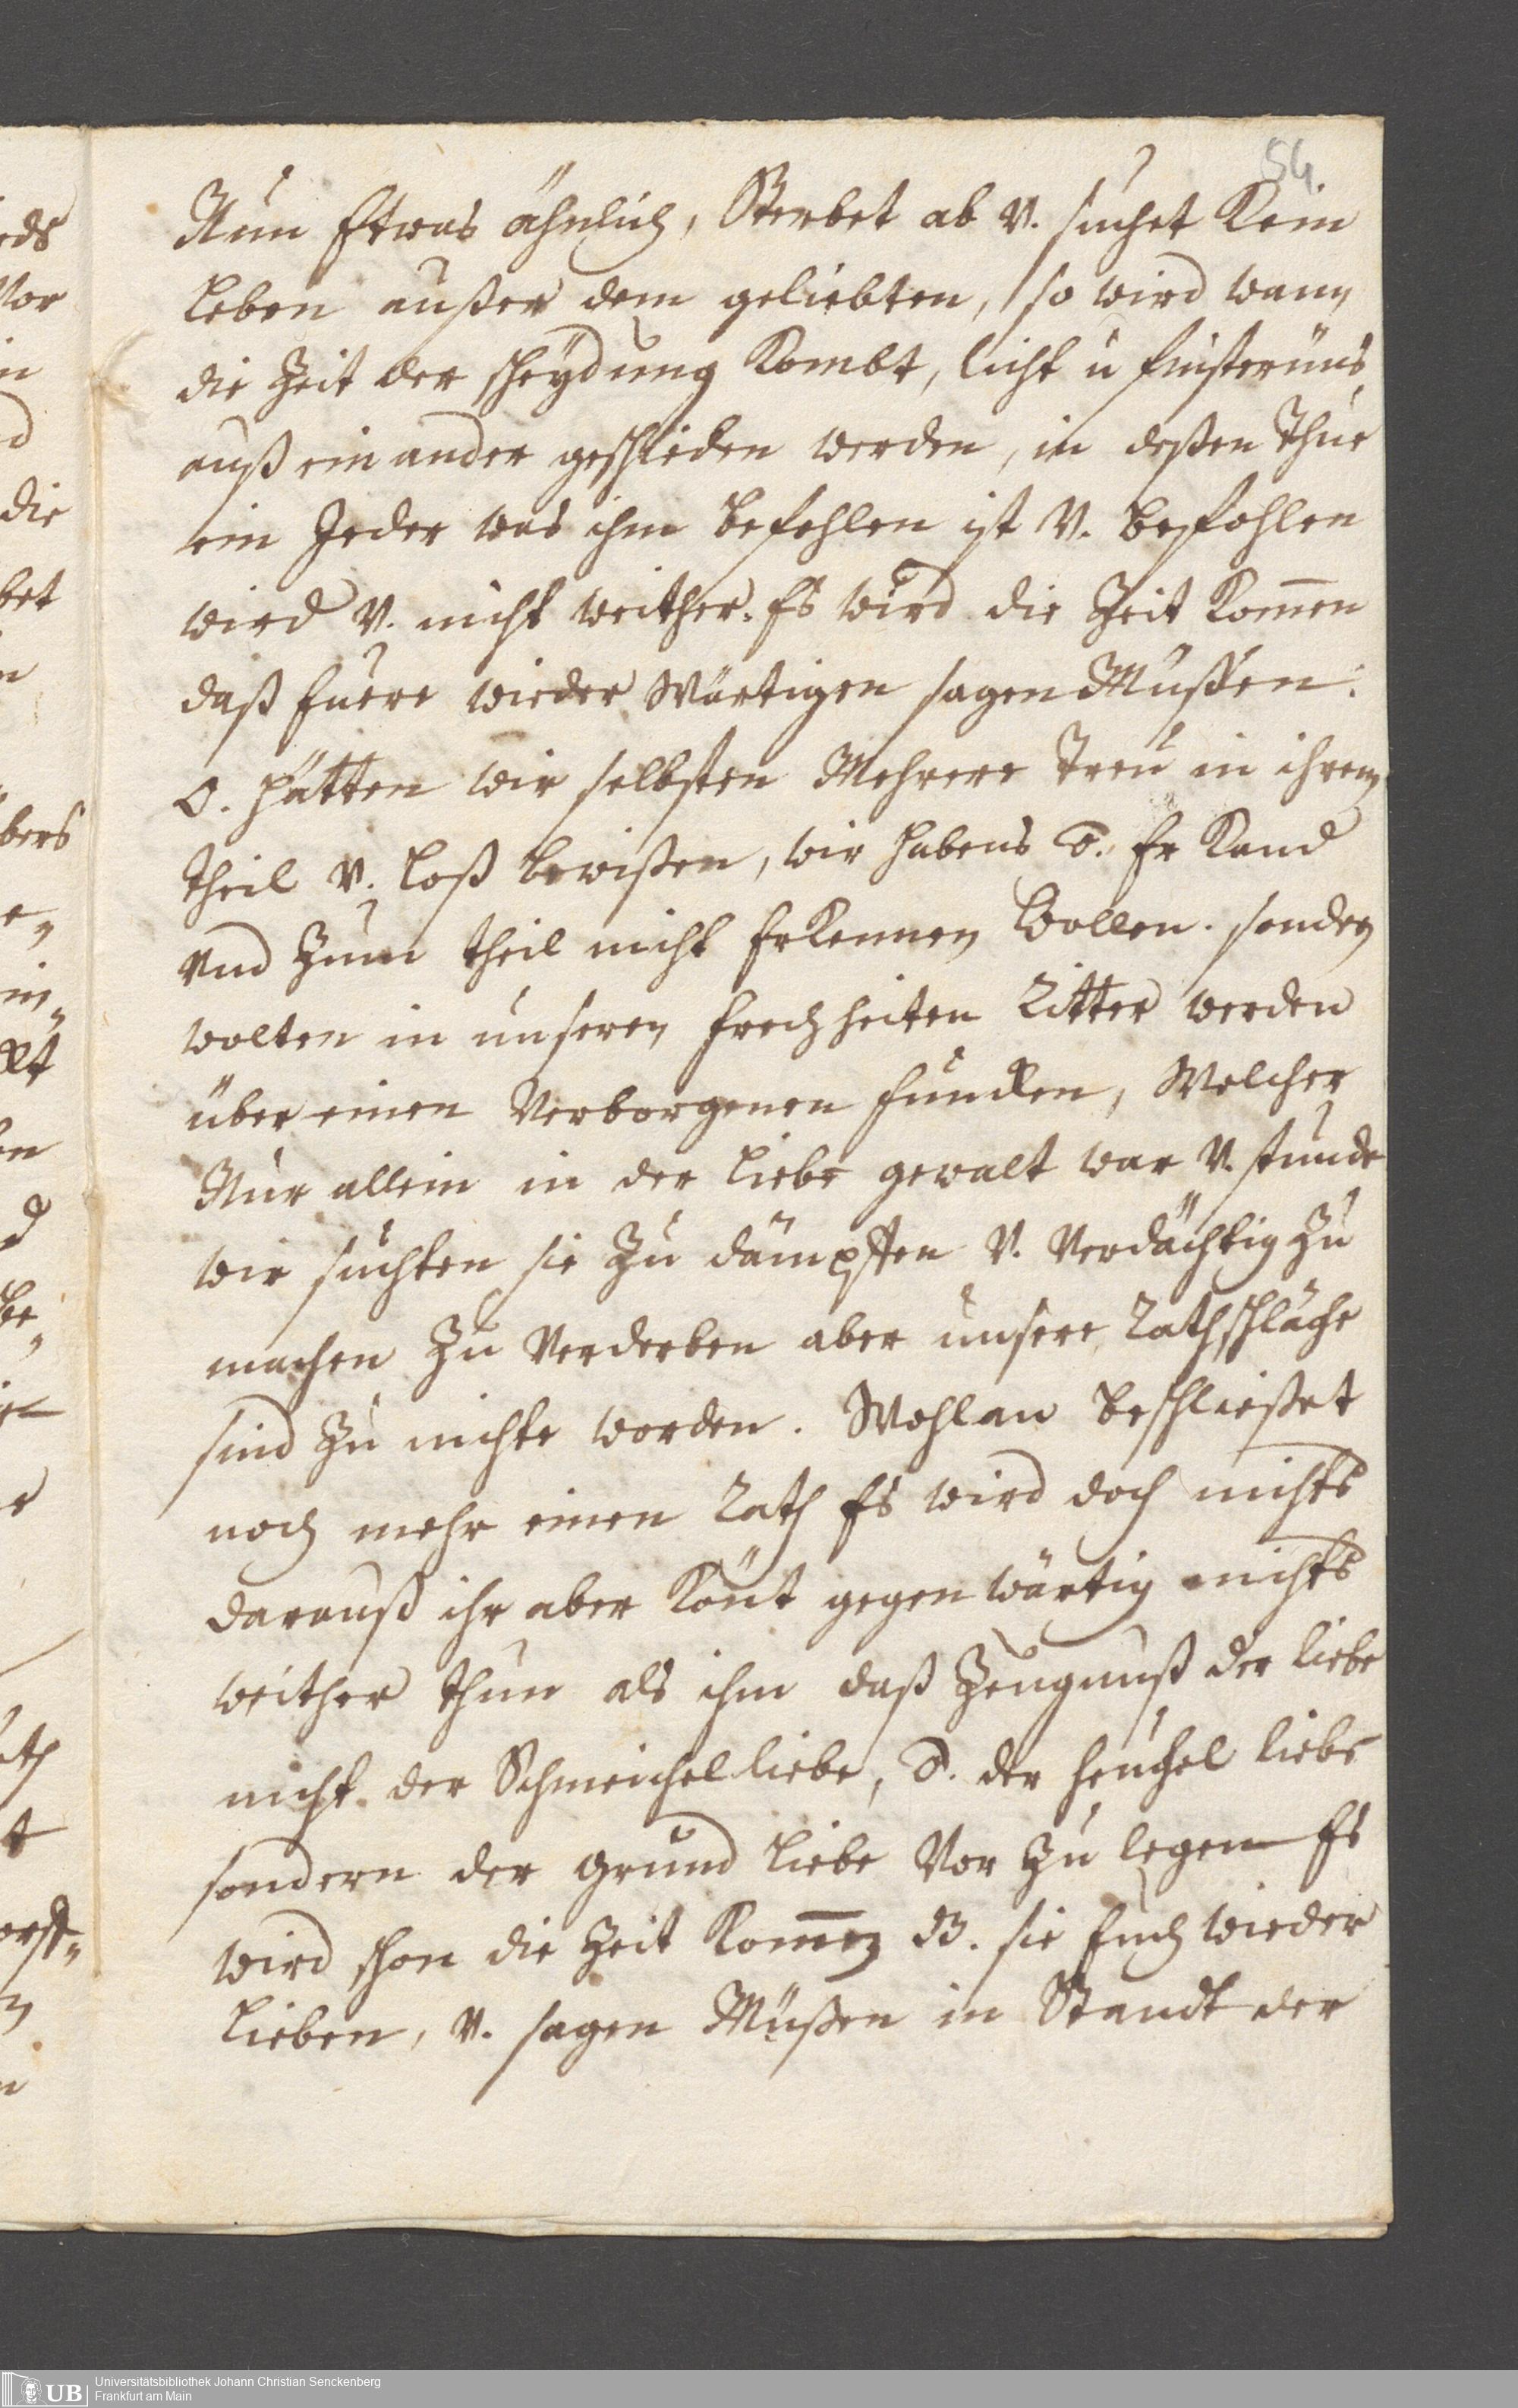 54
Nun Etwas ähnlich, Sterbet ab v. suchet Kein
Leben außer dem geliebten, so wird wann
die Zeit der scheydung Kombt, licht u finsternüs
auß ein ander geschieden werden, in deßen thue
ein Jeder was ihm befohlen ist v. befohlen
wird v. nicht weither. Es wird die Zeit Kom̅en
daß Euere wieder wärtigen sagen Mußen:
O. hätten wir selbsten Mehrere Treu in ihrem
theil v. Loß bewißen, wir habens Er Kand
und zum theil nicht Erkennen Wollen. sondern
wolten in unseren frechheiten Ritter werden
über einen Verborgenen funcken, Welcher
Nur allein in der Liebe gewalt war v. stunde
wir suchten sie zu dämpffen v. Verdächtig zu
machen zu Verderben aber unsere Rathschläge
sind zu nichte worden. Wohlan beschließet
noch mehr einen Rath Es wird doch nichts
darauß ihr aber Könt gegenwärtig nichts
weither thun als ihm daß Zeugnuß der liebe
nicht der Schmeichelliebe, o. der heuchel liebe
sondern der grund Liebe Vor zu legen Es
wird schon die Zeit Kom̅en sie Euch wieder
Lieben, v. sagen Müßen in Standt der
eds
Vor
in
die
bet
bers
UB
Universitätsbibliothek Johann Christian Senckenberg
Frankfurt am Main